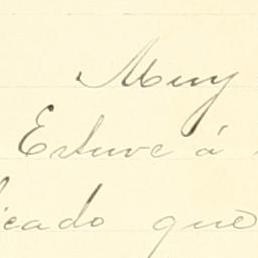 Muy
Estuve á
icado que